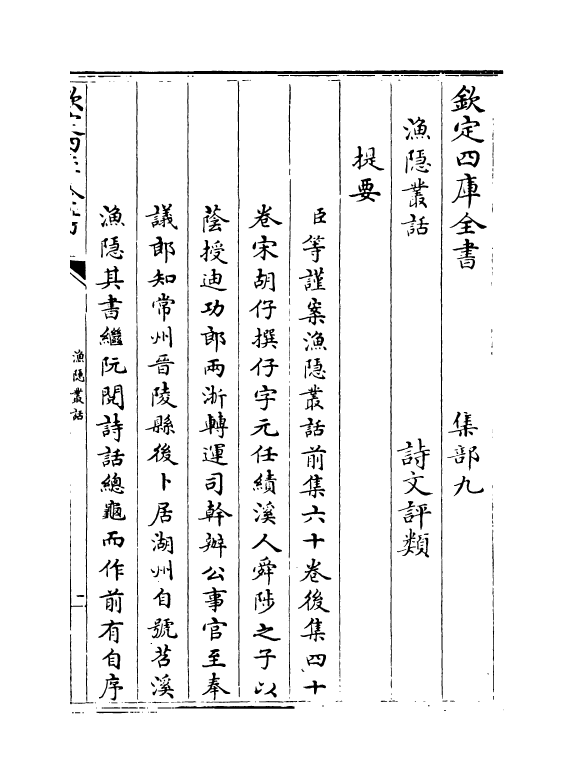 欽定四庫全書 集部九
漁隱叢話 詩文評類
提要
臣等謹案漁隱叢話前集六十卷後集四十
卷宋胡仔撰仔字元任績溪人舜陟之子以
蔭授迪功郎兩浙轉運司幹辦公事官至奉
議郎知常州晉陵縣後卜居湖州自號苕溪
漁隱其書繼阮閱詩話總龜而作前有自序
漁隱叢話
二